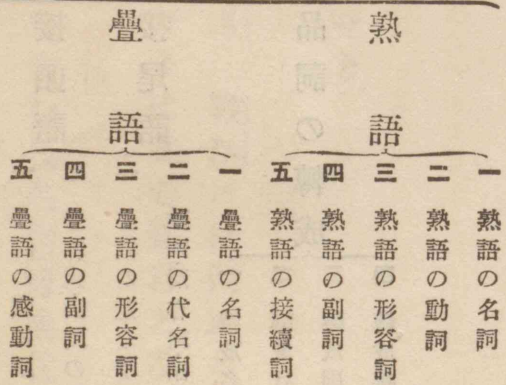 熟語
一 熟語の名詞
二 熟語の動詞
三 熟語の形容詞
四 熟語の副詞
五 熟語の接續詞
疊語
一 疊語の名詞
二 疊語の代名詞
三 疊語の形容詞
四 疊語の副詞
五 疊語の感動詞